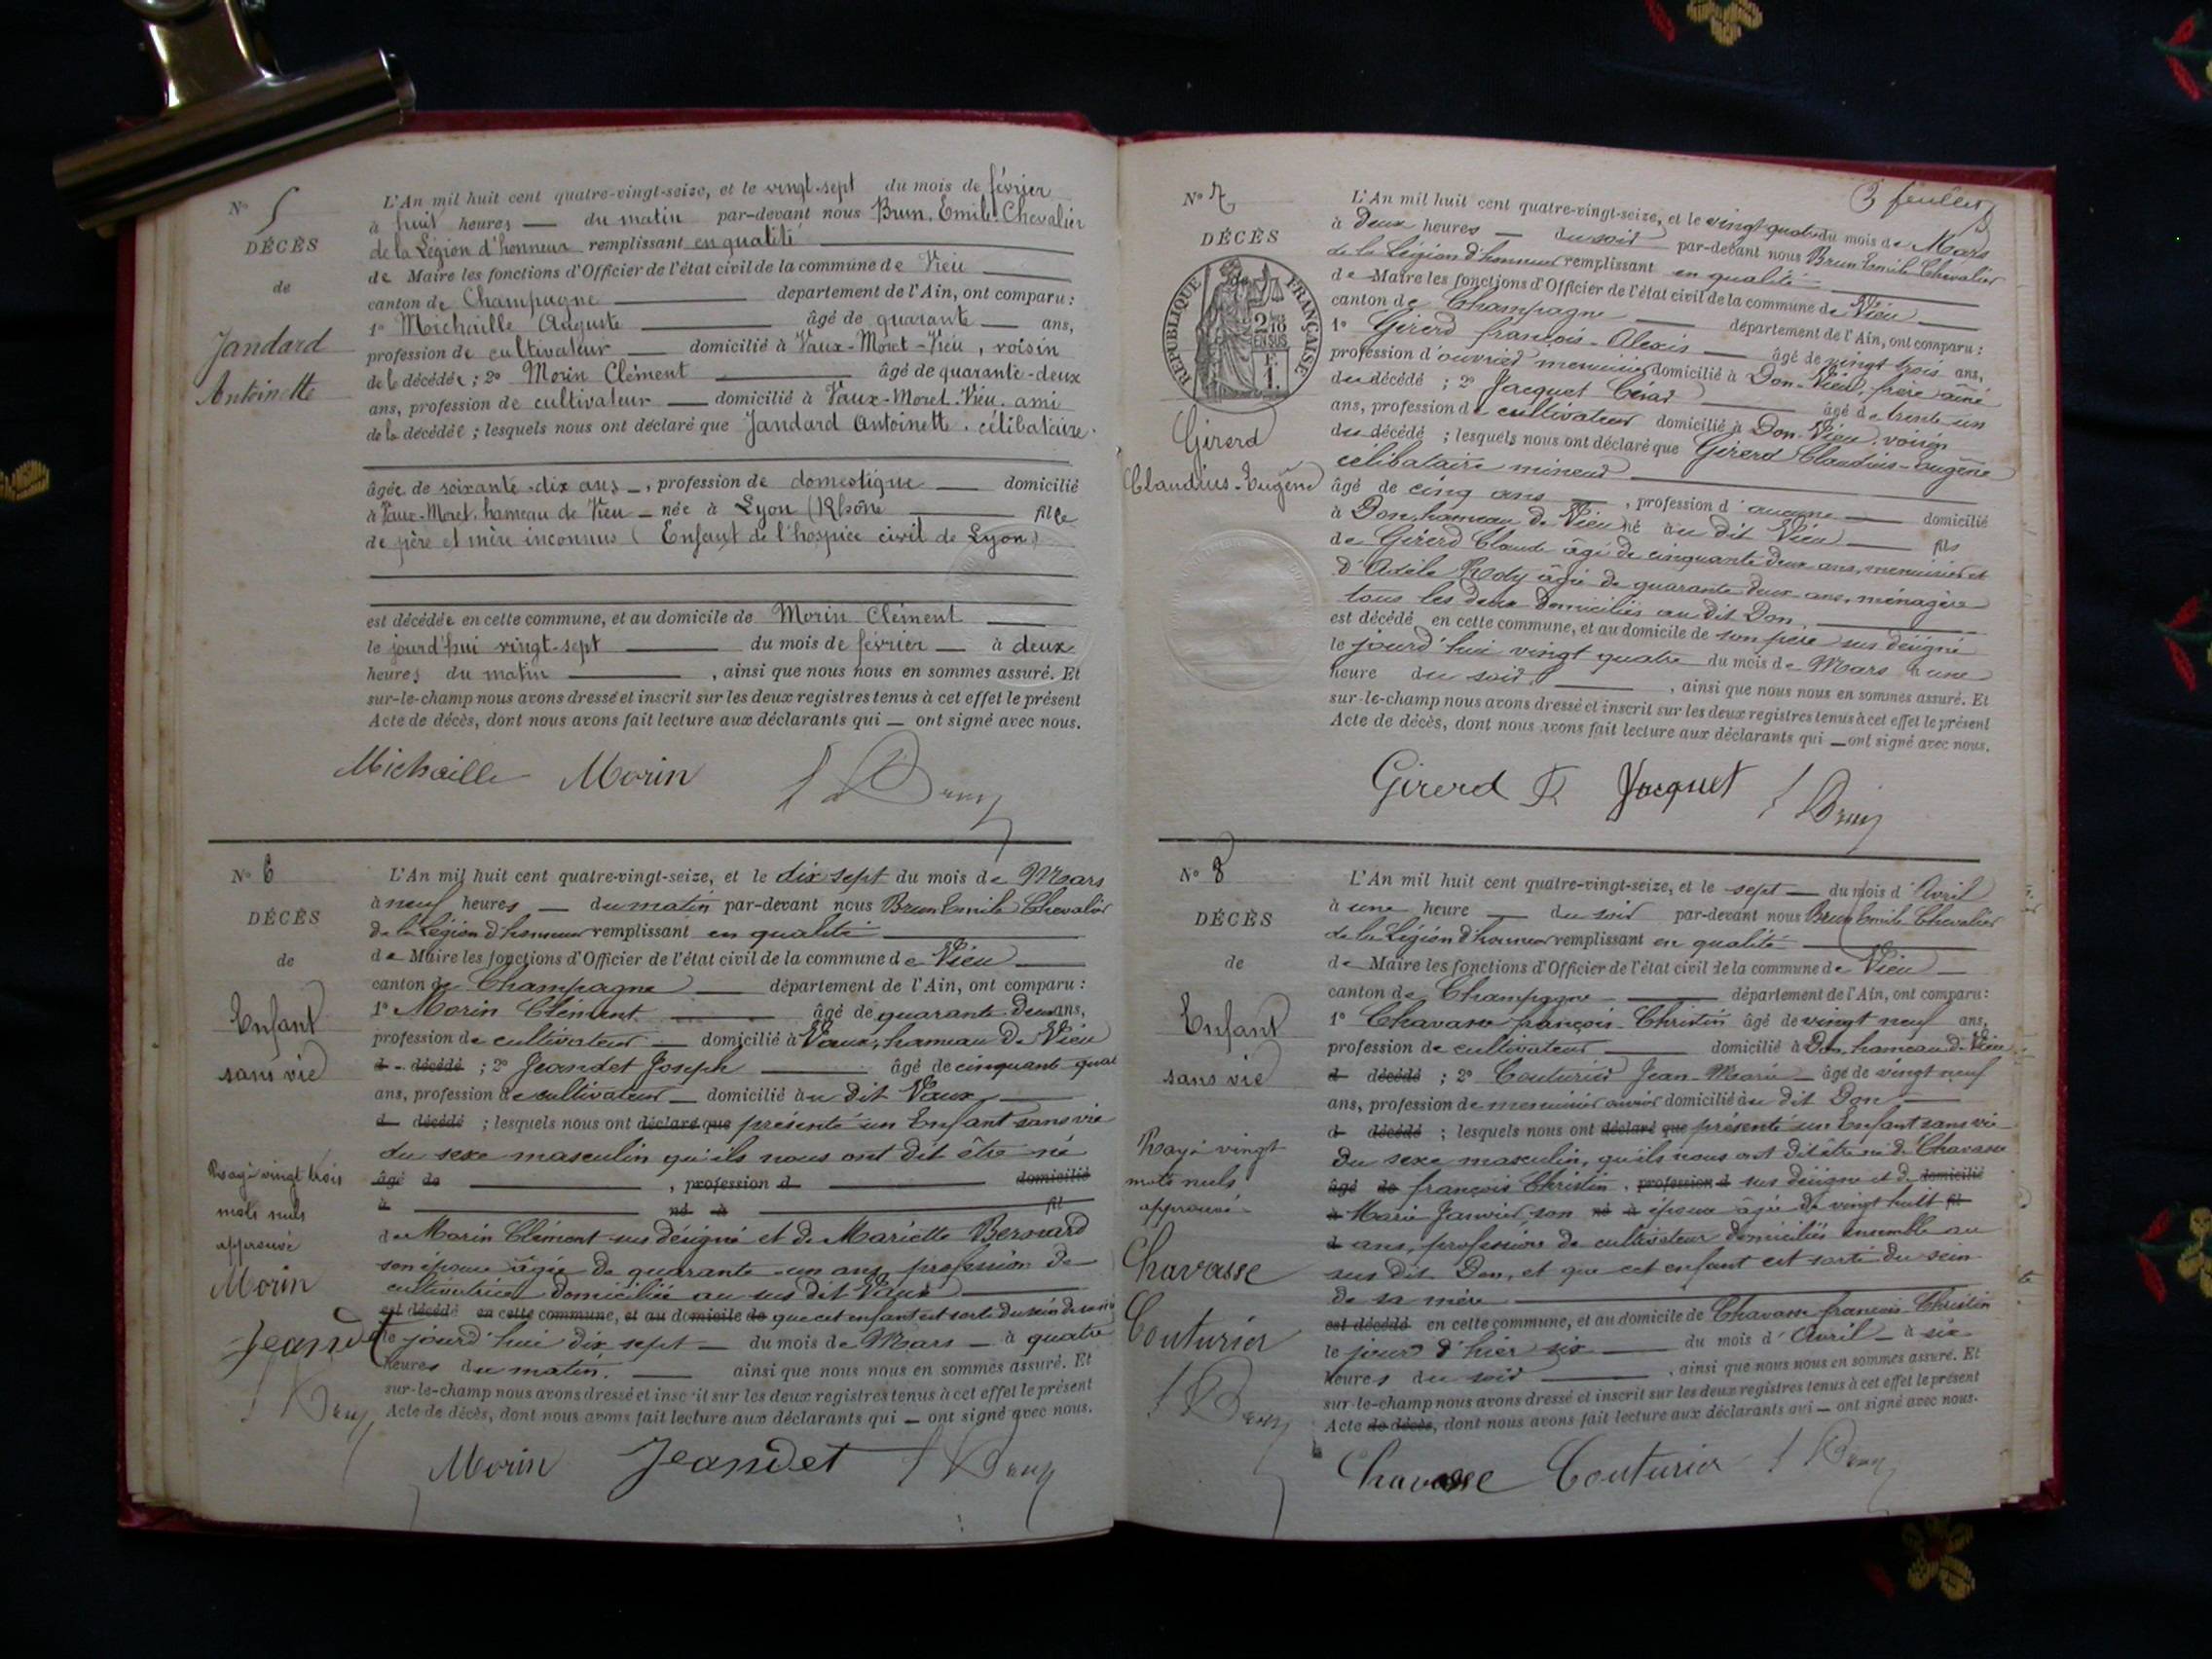 N° 5
DÉCÈS
de
Jandard
Antoinette
L'An mil huit cent quatre-vingt-seize, et le vingt-sept du mois de février
à huit heures — du matin par-devant nous Brun, Emile, Chevalier
de la Légion d'honneur remplissant en qualité
de Maire les fonctions d'Officier de l'état civil de la commune de Vieu
canton de Champagne département de l'Ain, ont comparu :
1° Michaille Auguste âgé de quarante ans,
profession de cultivateur domicilié à Vaux-Moret-Vieu, voisin
de la décédée ; 2° Morin Clément âgé de quarante-deux
ans, profession de cultivateur domicilié à Vaux-Moret-Vieu. ami
de la décédée ; lesquels nous ont déclaré que Jandard Antoinette, célibataire.
âgée de soixante-dix ans, profession de domestique domicilié
à Vaux-Moret, hameau de Vieu née à Lyon (Rhône fille
de père et mère inconnus (Enfant de l'hospice civil de Lyon)
est décédée en cette commune, et au domicile de Morin Clément
le jourd'hui vingt-sept du mois de février à deux
heures du matin, ainsi que nous nous en sommes assuré. Et
sur-le-champ nous avons dressé et inscrit sur les deux registres tenus à cet effet le présent
Acte de décès, dont nous avons fait lecture aux déclarants qui — ont signé avec nous.
Michaille Morin Brun
N° 6
DÉCÈS
de
Enfant
sans vie
Rayé vingt trois
mots nuls
approuvé
Morin
Jeandet
Brun
L'An mil huit cent quatre-vingt-seize, et le dix sept du mois de Mars
à neuf heures — du matin par-devant nous Brun Emile Chevalier
de la Légion d'honneur remplissant en qualité
de Maire les fonctions d'Officier de l'état civil de la commune de Vieu
canton de Champagne département de l'Ain, ont comparu :
1° Morin Clément âgé de quarante deux ans,
profession de cultivateur domicilié à Vaux, hameau de Vieu
d décédé ; 2° Jeandet Joseph âgé de cinquante quat
ans, profession de cultivateur domicilié au dit Vaux
d décédé ; lesquels nous ont déclaré que présenté un Enfant sans vie
du sexe masculin qu'ils nous ont dit être né
âgé de , profession d domicilié
à né à fil
de Morin Clément sus désigné et de Mariette Berouard
son épouse âgée de quarante un ans, profession de
cultivatrice domiciliée au sus dit Vaux
est décédé en cette commune, et au domicile de que cet enfant est sorti du sein de sa mère
le jourd'hui dix sept du mois de Mars à quatre
heures du matin. ainsi que nous nous en sommes assuré. Et
sur-le-champ nous avons dressé et inscrit sur les deux registres tenus à cet effet le présent
Acte de décès, dont nous avons fait lecture aux déclarants qui — ont signé avec nous.
Morin Jeandet Brun
3 feuillet
N° 7
DÉCÈS
RÉPUBLIQUE FRANÇAISE
2/10 EN SUS
F. 1.
Girerd
Claudius-Eugène
L'An mil huit cent quatre-vingt-seize, et le vingt quatre du mois de Mars
à deux heures — du soir par-devant nous Brun Emile Chevalier
de la Légion d'honneur remplissant en qualité
de Maire les fonctions d'Officier de l'état civil de la commune de Vieu
canton de Champagne département de l'Ain, ont comparu :
1° Girerd françois-Alexis âgé de vingt trois ans,
profession d'ouvrier menuisier domicilié à Don-Vieu, frère aîné
du décédé ; 2° Jacquet César âgé de trente un
ans, profession de cultivateur domicilié à Don-Vieu, voisin
du décédé ; lesquels nous ont déclaré que Girerd Claudius-Eugène
célibataire mineur
âgé de cinq ans, profession d'aucune domicilié
à Don, hameau de Vieu né au dit Vieu fils
de Girerd Claude âgé de cinquante deux ans, menuisier et
d'Adèle Rody âgée de quarante deux ans, ménagère
tous les deux domiciliés au dit Don,
est décédé en cette commune, et au domicile de son père sus désigné
le jourd'hui vingt quatre du mois de Mars à une
heure du soir, ainsi que nous nous en sommes assuré. Et
sur-le-champ nous avons dressé et inscrit sur les deux registres tenus à cet effet le présent
Acte de décès, dont nous avons fait lecture aux déclarants qui — ont signé avec nous.
Girerd F. Jacquet Brun
N° 8
DÉCÈS
de
Enfant
sans vie
Rayé vingt
mots nuls
approuvé
Chavasse
Couturier
Brun
L'An mil huit cent quatre-vingt-seize, et le sept du mois d'Avril
à une heure — du soir par-devant nous Brun Emile Chevalier
de la Légion d'honneur remplissant en qualité
de Maire les fonctions d'Officier de l'état civil de la commune de Vieu
canton de Champagne département de l'Ain, ont comparu :
1° Chavasse françois-Christin âgé de vingt neuf ans,
profession de cultivateur domicilié à Don, hameau de Vieu
d décédé ; 2° Couturier Jean-Marie âgé de vingt neuf
ans, profession de menuisier ouvrier domicilié au dit Don
d décédé ; lesquels nous ont déclaré que présenté un Enfant sans vie
du sexe masculin, qu'ils nous ont dit être né de Chavasse
âgé de françois Christin, profession d sus désigné et de domicilié
à Marie Janvier, son né à épouse âgée de vingt huit fil
d ans, profession de cultivateur domiciliés ensemble au
sus dit Don, et que cet enfant est sorti du sein
de sa mère
est décédé en cette commune, et au domicile de Chavasse françois-Christin
le jour d'hier six du mois d'Avril à six
heures du soir, ainsi que nous nous en sommes assuré. Et
sur-le-champ nous avons dressé et inscrit sur les deux registres tenus à cet effet le présent
Acte de décès, dont nous avons fait lecture aux déclarants qui — ont signé avec nous.
Chavasse Couturier Brun